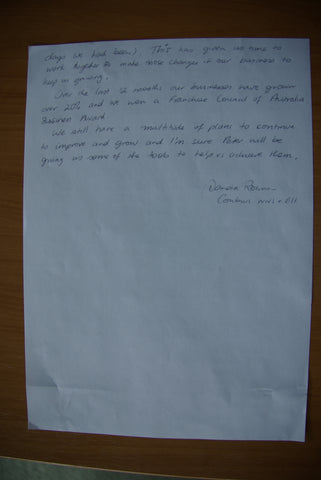 days we had been). This has given us time to
work together to make those changes in our business to
keep on growing.
Over the last 12 months our businesses have grown
over 20% and we won a Franchise Council of Australia
Business Award.
We still have a multitude of plans to continue
to improve and grow and I'm sure Peter will be
giving us some of the tools to help us achieve them.